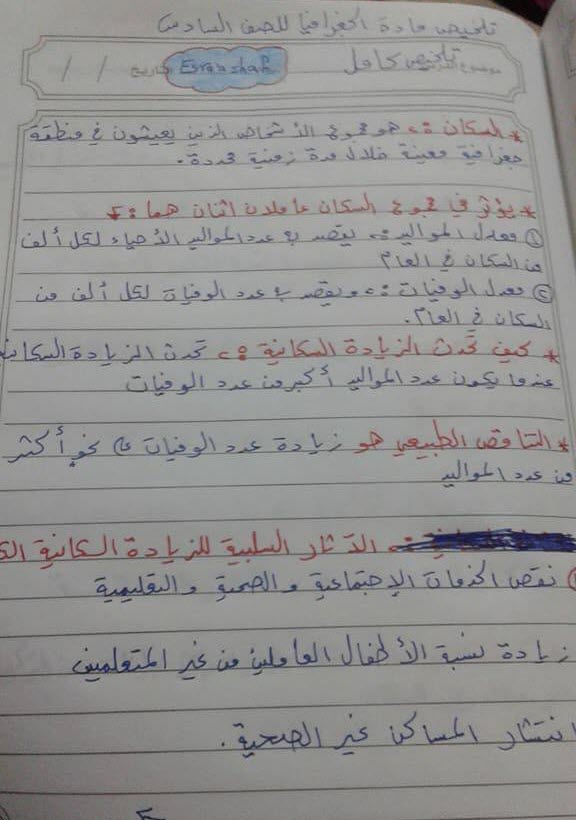 تلخيص مادة الجغرافيا للصف السادس
موضوع الدرس تلخيص كامل Esraa shaf التاريخ / /
* السكان :- هو مجموع الأشخاص الذين يعيشون في منطقة
جغرافية معينة خلال مدة زمنية محددة.
* يؤثر في مجموع السكان عاملان اثنان هما :-
① معدل المواليد :- يقصد به عدد المواليد الأحياء لكل ألف
من السكان في العام
② معدل الوفيات :- ويقصد به عدد الوفيات لكل ألف من
السكان في العام.
* كيف تحدث الزيادة السكانية :- تحدث الزيادة السكانية
عندما يكون عدد المواليد أكبر من عدد الوفيات
* التناقص الطبيعي هو زيادة عدد الوفيات على نحو أكثر
من عدد المواليد
الآثار السلبية للزيادة السكانية
① نقص الخدمات الإجتماعية والصحية والتعليمية
زيادة نسبة الأطفال العاملين من غير المتعلمين
انتشار المساكن غير الصحية.